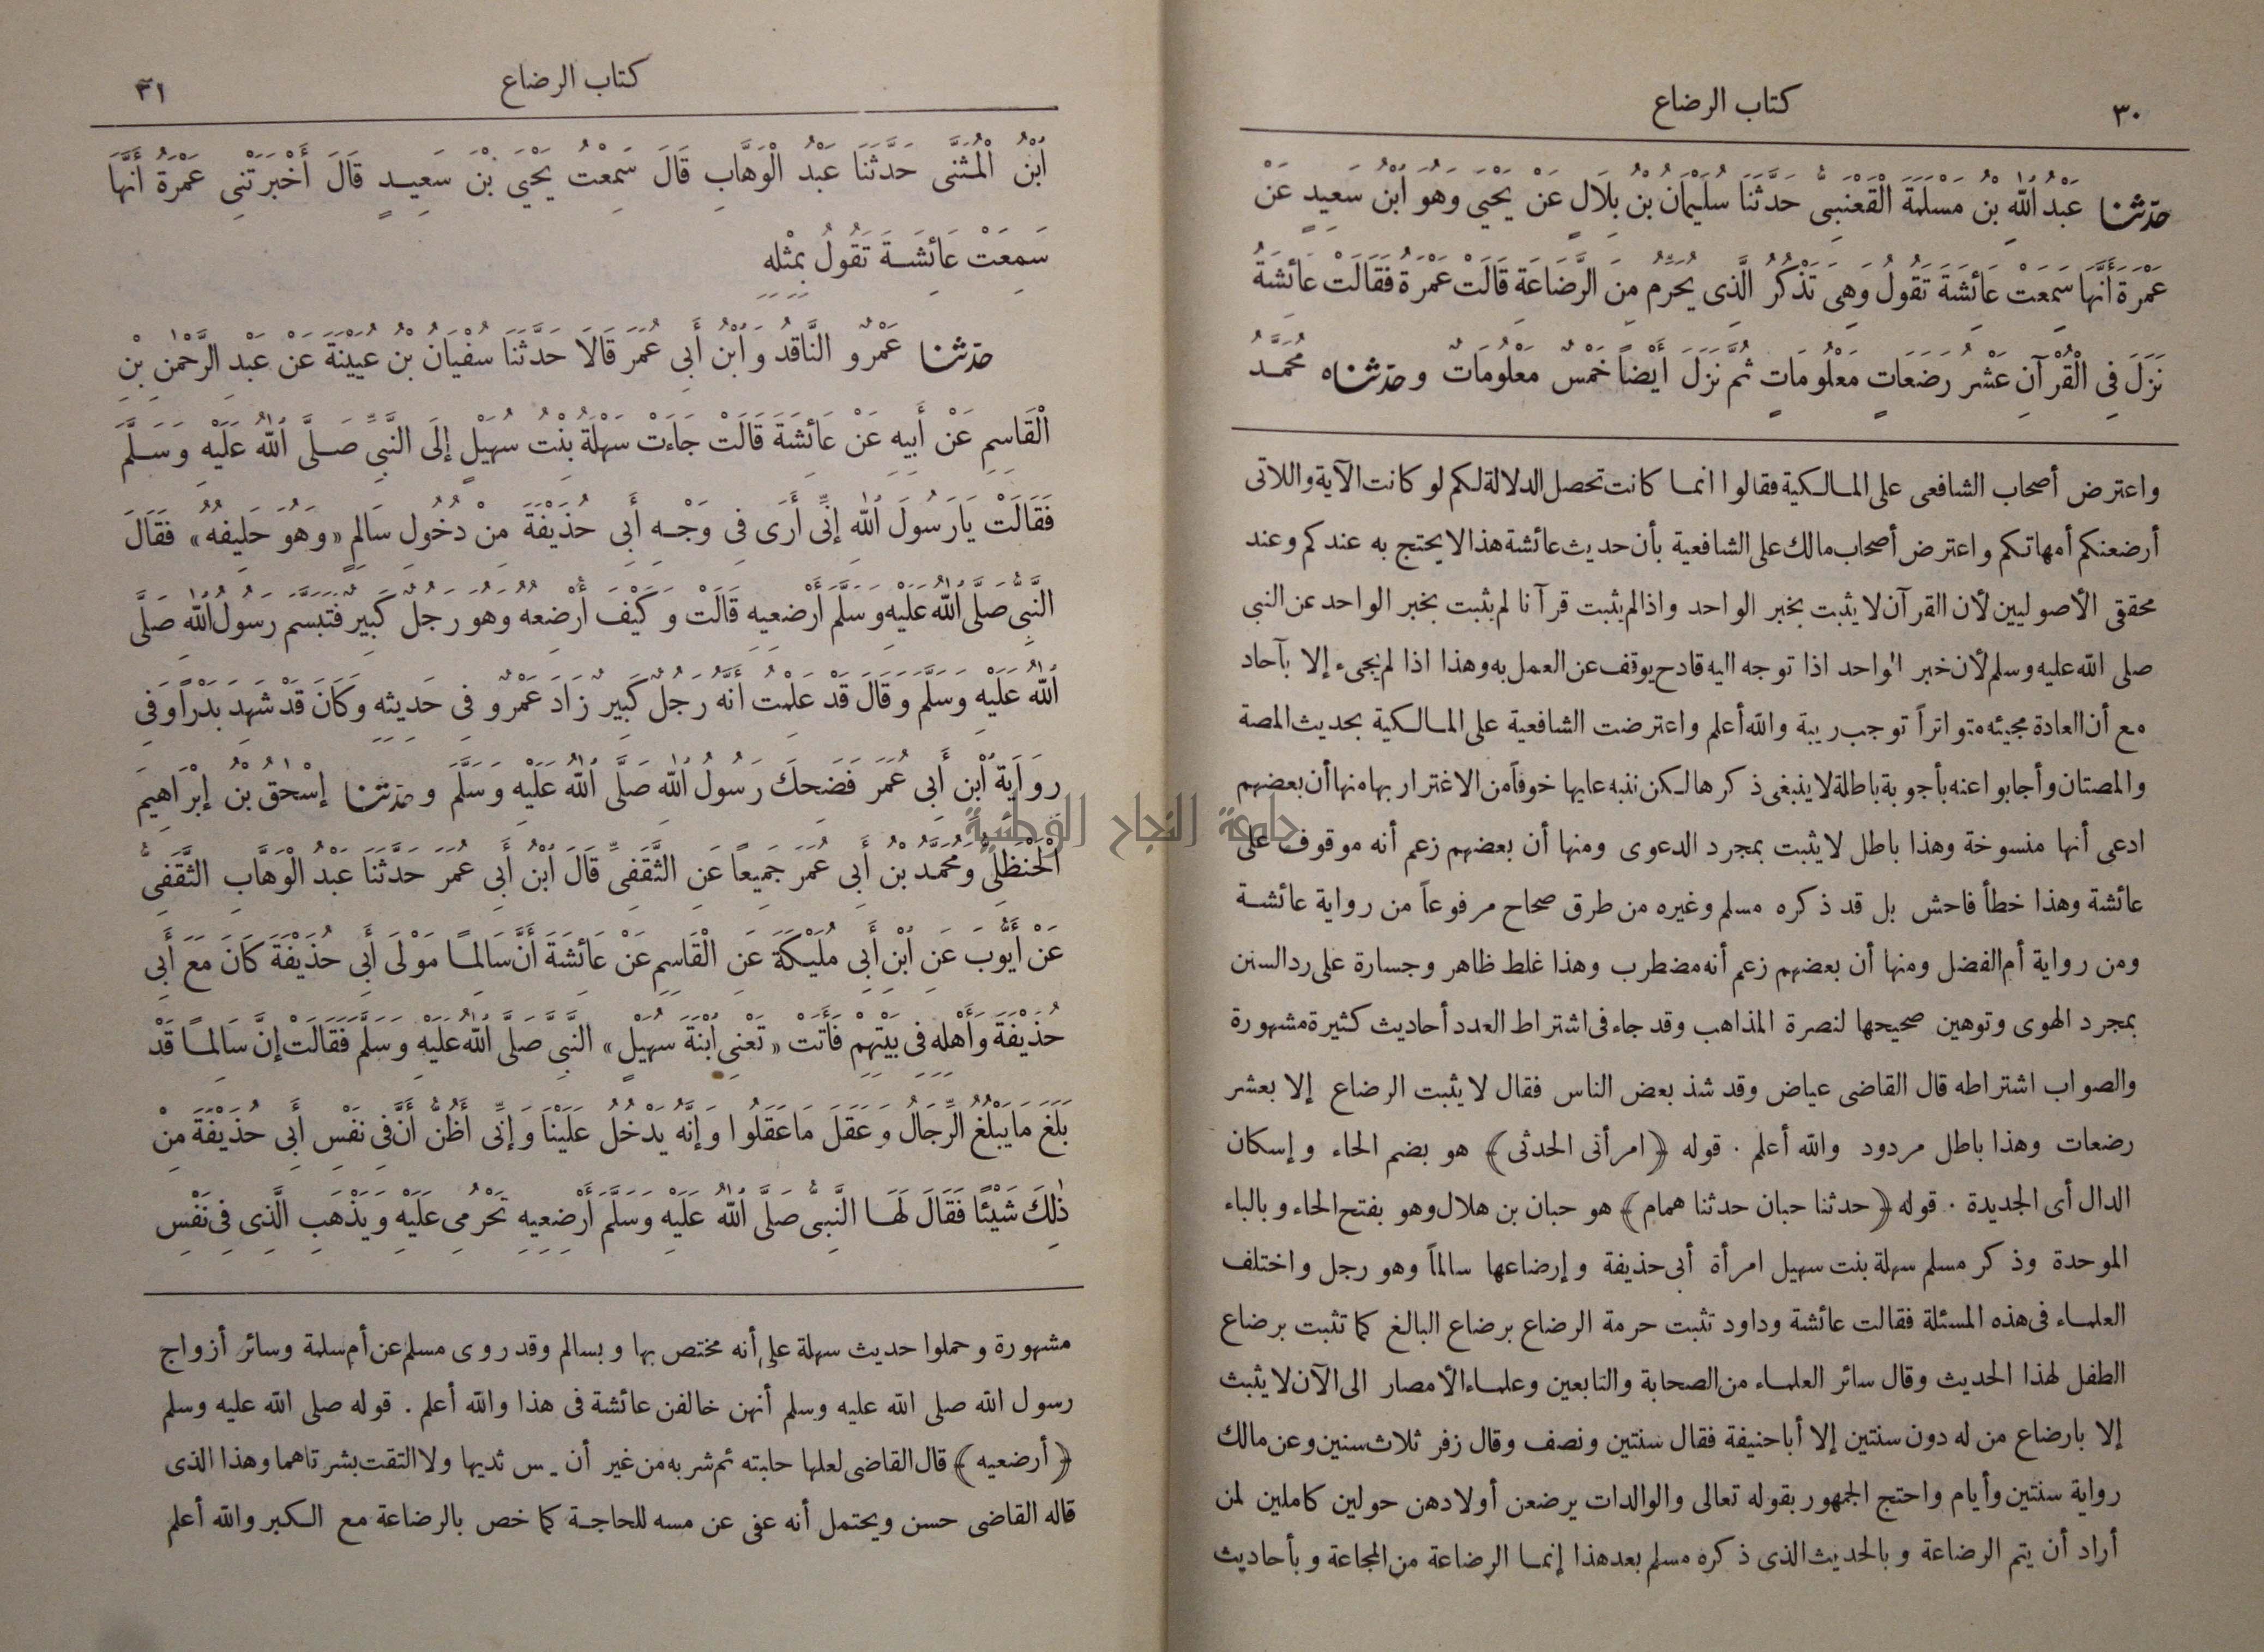 ٣٠
كتاب الرضاع
حدثنا عَبْدُ اللهِ بْنُ مَسْلَمَةَ الْقَعْنَبِىُّ حَدَّثَنَا سُلَيْمَانُ بْنُ بِلَالٍ عَنْ يَحْيَى وَهُوَ ابْنُ سَعِيدٍ عَنْ
عَمْرَةَ أَنَّهَا سَمِعَتْ عَائِشَةَ تَقُولُ وَهِىَ تَذْكُرُ الَّذِى يُحَرِّمُ مِنَ الرَّضَاعَةِ قَالَتْ عَمْرَةُ فَقَالَتْ عَائِشَةُ
نَزَلَ فِى الْقُرْآنِ عَشْرُ رَضَعَاتٍ مَعْلُومَاتٍ ثُمَّ نَزَلَ أَيْضاً خَمْسٌ مَعْلُومَاتٌ و حدثناه مُحَمَّدُ
واعترض أصحاب الشافعى على المالكية فقالوا انما كانت تحصل الدلالة لكم لو كانت الآية واللاتى
أرضعنكم أمهاتكم واعترض أصحاب مالك على الشافعية بأن حديث عائشة هذا لا يحتج به عندكم وعند
محققى الأصوليين لأن القرآن لا يثبت بخبر الواحد واذا لم يثبت قرآنا لم يثبت بخبر الواحد عن النبى
صلى الله عليه وسلم لأن خبر الواحد اذا توجه اليه قادح يوقف عن العمل به وهذا اذا لم يجىء إلا بآحاد
مع أن العادة مجيئه متواتراً توجب ريبة والله أعلم واعترضت الشافعية على المالكية بحديث المصة
والمصتان وأجابوا عنه بأجوبة باطلة لا ينبغى ذكرها لكن ننبه عليها خوفاً من الاغترار بها منها أن بعضهم
ادعى أنها منسوخة وهذا باطل لا يثبت بمجرد الدعوى ومنها أن بعضهم زعم أنه موقوف على
عائشة وهذا خطأ فاحش بل قد ذكره مسلم وغيره من طرق صحاح مرفوعاً من رواية عائشة
ومن رواية أم الفضل ومنها أن بعضهم زعم أنه مضطرب وهذا غلط ظاهر وجسارة على رد السنن
بمجرد الهوى وتوهين صحيحها لنصرة المذاهب وقد جاء فى اشتراط العدد أحاديث كثيرة مشهورة
والصواب اشتراطه قال القاضى عياض وقد شذ بعض الناس فقال لا يثبت الرضاع إلا بعشر
رضعات وهذا باطل مردود والله أعلم . قوله ﴿امرأتى الحدثى﴾ هو بضم الحاء وإسكان
الدال أى الجديدة . قوله ﴿حدثنا حبان حدثنا همام﴾ هو حبان بن هلال وهو بفتح الحاء وبالباء
الموحدة وذكر مسلم سهلة بنت سهيل امرأة أبى حذيفة وإرضاعها سالماً وهو رجل واختلف
العلماء فى هذه المسئلة فقالت عائشة وداود تثبت حرمة الرضاع برضاع البالغ كما تثبت برضاع
الطفل لهذا الحديث وقال سائر العلماء من الصحابة والتابعين وعلماء الأمصار الى الآن لا يثبت
إلا بارضاع من له دون سنتين إلا أبا حنيفة فقال سنتين ونصف وقال زفر ثلاث سنين وعن مالك
رواية سنتين وأيام واحتج الجمهور بقوله تعالى والوالدات يرضعن أولادهن حولين كاملين لمن
أراد أن يتم الرضاعة وبالحديث الذى ذكره مسلم بعد هذا إنما الرضاعة من المجاعة وبأحاديث
كتاب الرضاع
٣١
ابْنُ الْمُثَنَّى حَدَّثَنَا عَبْدُ الْوَهَّابِ قَالَ سَمِعْتُ يَحْيَى بْنَ سَعِيدٍ قَالَ أَخْبَرَتْنِى عَمْرَةُ أَنَّهَا
سَمِعَتْ عَائِشَةَ تَقُولُ بِمِثْلِهِ
حدثنا عَمْرٌو النَّاقِدُ وَابْنُ أَبِى عُمَرَ قَالَا حَدَّثَنَا سُفْيَانُ بْنُ عُيَيْنَةَ عَنْ عَبْدِ الرَّحْمٰنِ بْنِ
الْقَاسِمِ عَنْ أَبِيهِ عَنْ عَائِشَةَ قَالَتْ جَاءَتْ سَهْلَةُ بِنْتُ سُهَيْلٍ إِلَى النَّبِىِّ صَلَّى اللهُ عَلَيْهِ وَسَلَّمَ
فَقَالَتْ يَا رَسُولَ اللهِ إِنِّى أَرَى فِى وَجْهِ أَبِى حُذَيْفَةَ مِنْ دُخُولِ سَالِمٍ «وَهُوَ حَلِيفُهُ» فَقَالَ
النَّبِىُّ صَلَّى اللهُ عَلَيْهِ وَسَلَّمَ أَرْضِعِيهِ قَالَتْ وَكَيْفَ أُرْضِعُهُ وَهُوَ رَجُلٌ كَبِيرٌ فَتَبَسَّمَ رَسُولُ اللهِ صَلَّى
اللهُ عَلَيْهِ وَسَلَّمَ وَقَالَ قَدْ عَلِمْتُ أَنَّهُ رَجُلٌ كَبِيرٌ زَادَ عَمْرٌو فِى حَدِيثِهِ وَكَانَ قَدْ شَهِدَ بَدْراً وَفِى
رِوَايَةِ ابْنِ أَبِى عُمَرَ فَضَحِكَ رَسُولُ اللهِ صَلَّى اللهُ عَلَيْهِ وَسَلَّمَ و حدثنا إِسْحٰقُ بْنُ إِبْرَاهِيمَ
الْحَنْظَلِىُّ وَمُحَمَّدُ بْنُ أَبِى عُمَرَ جَمِيعاً عَنِ الثَّقَفِىِّ قَالَ ابْنُ أَبِى عُمَرَ حَدَّثَنَا عَبْدُ الْوَهَّابِ الثَّقَفِىُّ
عَنْ أَيُّوبَ عَنِ ابْنِ أَبِى مُلَيْكَةَ عَنِ الْقَاسِمِ عَنْ عَائِشَةَ أَنَّ سَالِمًا مَوْلَى أَبِى حُذَيْفَةَ كَانَ مَعَ أَبِى
حُذَيْفَةَ وَأَهْلِهِ فِى بَيْتِهِمْ فَأَتَتْ «تَعْنِى ابْنَةَ سُهَيْلٍ» النَّبِىَّ صَلَّى اللهُ عَلَيْهِ وَسَلَّمَ فَقَالَتْ إِنَّ سَالِمًا قَدْ
بَلَغَ مَا يَبْلُغُ الرِّجَالُ وَعَقَلَ مَا عَقَلُوا وَإِنَّهُ يَدْخُلُ عَلَيْنَا وَإِنِّى أَظُنُّ أَنَّ فِى نَفْسِ أَبِى حُذَيْفَةَ مِنْ
ذٰلِكَ شَيْئًا فَقَالَ لَهَا النَّبِىُّ صَلَّى اللهُ عَلَيْهِ وَسَلَّمَ أَرْضِعِيهِ تَحْرُمِى عَلَيْهِ وَيَذْهَبِ الَّذِى فِى نَفْسِ
مشهورة وحملوا حديث سهلة على أنه مختص بها وبسالم وقد روى مسلم عن أم سلمة وسائر أزواج
رسول الله صلى الله عليه وسلم أنهن خالفن عائشة فى هذا والله أعلم . قوله صلى الله عليه وسلم
﴿أرضعيه﴾ قال القاضى لعلها حلبته ثم شربه من غير أن يمس ثديها ولا التقت بشرتاهما وهذا الذى
قاله القاضى حسن ويحتمل أنه عفى عن مسه للحاجة كما خص بالرضاعة مع الكبر والله أعلم
جامعة النجاح الوطنية